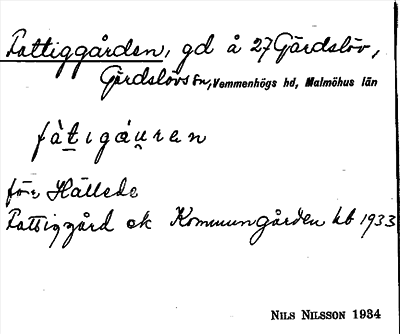 Fattiggården, gd å 27 Gärdslöv,
Gärdslövs sn, Vemmenhögs hd, Malmöhus län
fàtigáuren
Fattiggård ek Kommungården hb 1933
NILS NILSSON 1934